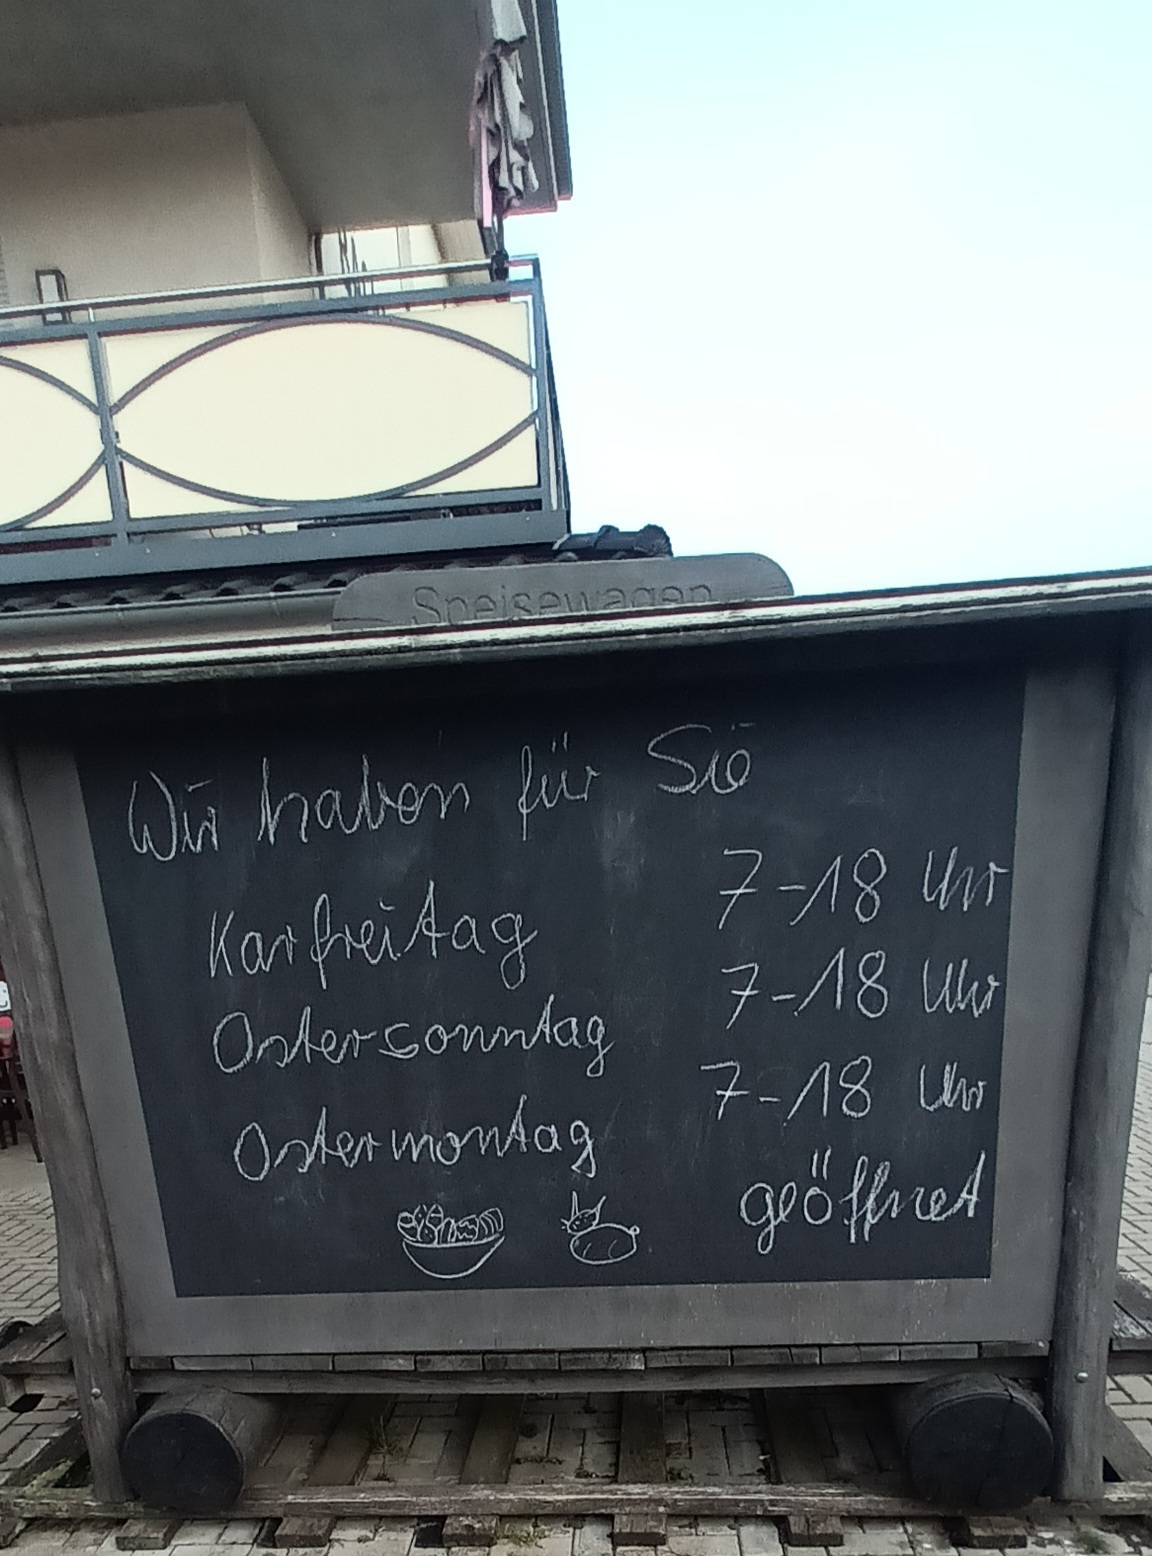 Speisewagen
Wir haben für Sie
Karfreitag 7-18 Uhr
Ostersonntag 7-18 Uhr
Ostermontag 7-18 Uhr
geöffnet